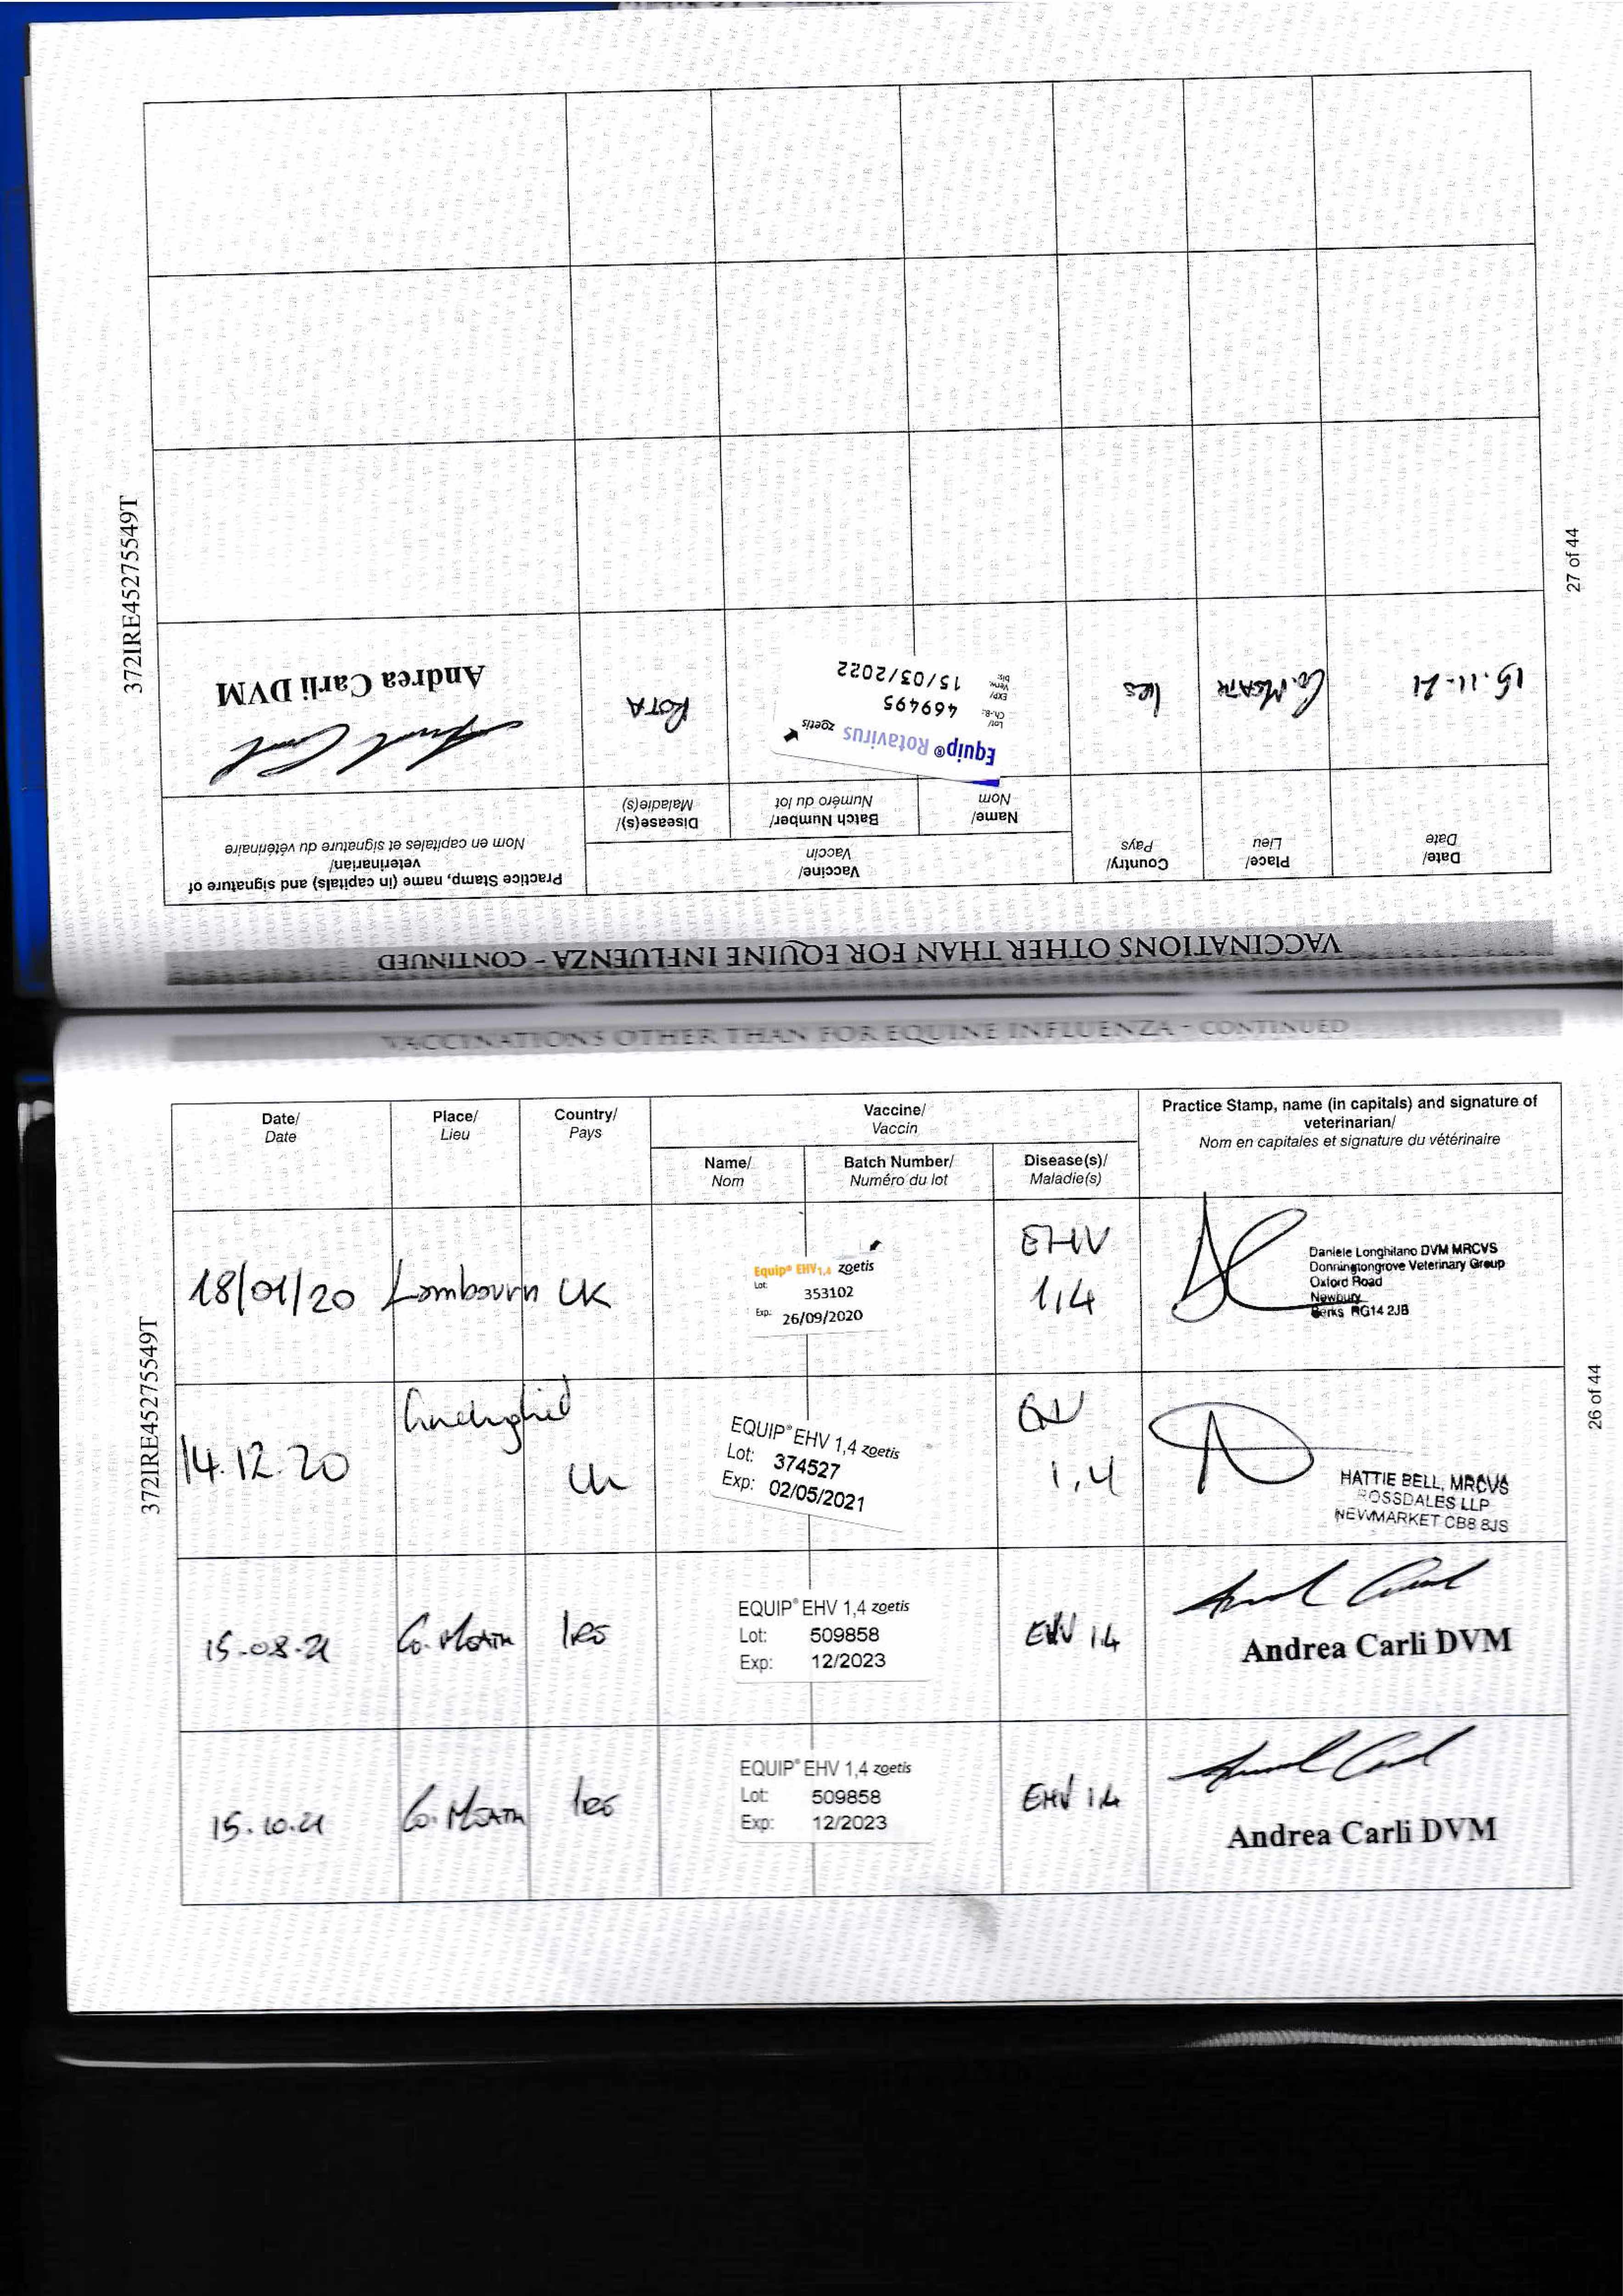 372IRE452755549T
27 of 44
VACCINATIONS OTHER THAN FOR EQUINE INFLUENZA - CONTINUED
Date/
Date
Place/
Lieu
Country/
Pays
Vaccine/
Vaccin
Name/
Nom
Batch Number/
Numéro du lot
Disease(s)/
Maladie(s)
Practice Stamp, name (in capitals) and signature of
veterinarian/
Nom en capitales et signature du vétérinaire
15.11.21
Co. MEATH
Ire
Equip® Rotavirus zoetis
Lot/
Ch.-B.:
469495
EXP/
Verw.
bis:
15/03/2022
ROTA
Andrea Carli DVM
VACCINATIONS OTHER THAN FOR EQUINE INFLUENZA - CONTINUED
Date/
Date
Place/
Lieu
Country/
Pays
Vaccine/
Vaccin
Name/
Nom
Batch Number/
Numéro du lot
Disease(s)/
Maladie(s)
Practice Stamp, name (in capitals) and signature of
veterinarian/
Nom en capitales et signature du vétérinaire
18/01/20 Lambourn UK
Equip® EHV1,4 zoetis
Lot: 353102
Exp: 26/09/2020
EHV
1,4
Daniele Longhitano DVM MRCVS
Donningtongrove Veterinary Group
Oxford Road
Newbury
Berks RG14 2JB
14.12.20
UK
EQUIP® EHV 1,4 zoetis
Lot: 374527
Exp: 02/05/2021
1,4
HATTIE BELL, MRCVS
ROSSDALES LLP
NEWMARKET CB8 8JS
15.08.21 Co. MEATH Ire
EQUIP® EHV 1,4 zoetis
Lot: 509858
Exp: 12/2023
EHV 1.4
Andrea Carli DVM
15.10.21 Co. MEATH Ire
EQUIP® EHV 1,4 zoetis
Lot: 509858
Exp: 12/2023
EHV 1.4
Andrea Carli DVM
372IRE452755549T
26 of 44